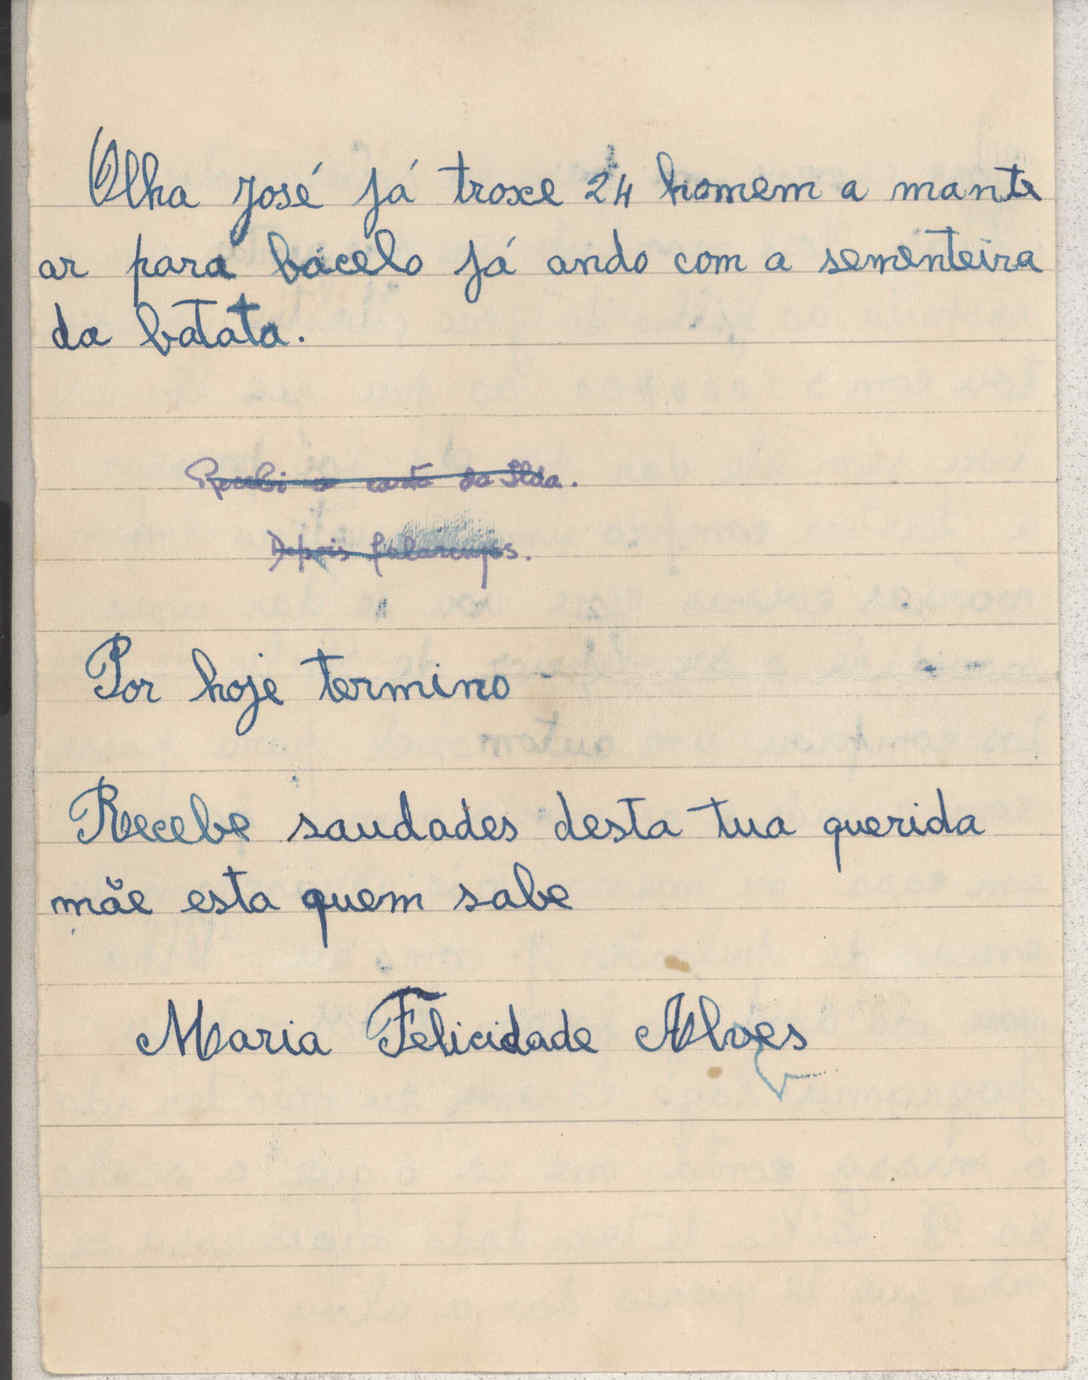 Olha José já troxe 24 homem a mante
ar para bácelo já ando com a sementeira
da batata.
Recebi a carta da Ilda.
Depois falaremos.
Por hoje termino
Recebe saudades desta tua querida
mãe esta quem sabe
Maria Felicidade Alves